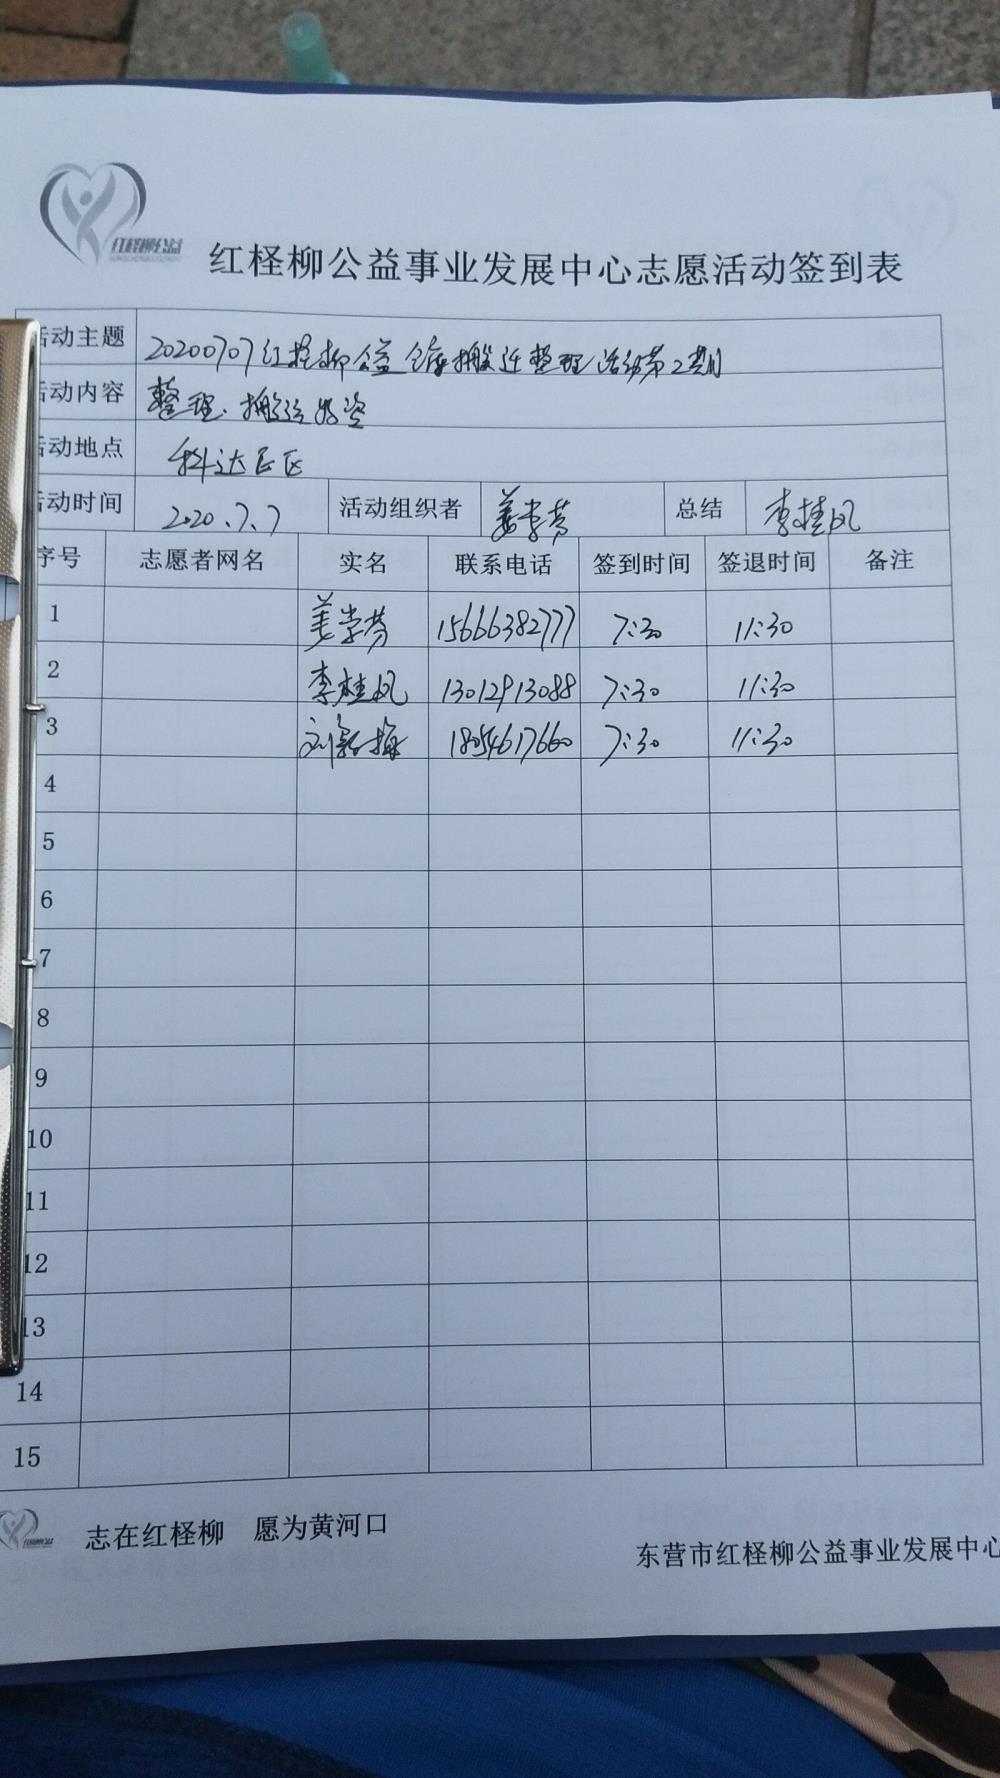 红柽柳公益
红柽柳公益事业发展中心志愿活动签到表
活动主题 20200707红柽柳公益仓库搬迁整理活动第2期
活动内容 整理、搬运物资
活动地点 科达E区
活动时间 2020.7.7 活动组织者 姜学芬 总结 李桂凤
序号 志愿者网名 实名 联系电话 签到时间 签退时间 备注
1 姜学芬 15666382777 7:30 11:30
2 李桂凤 13012913088 7:30 11:30
3 刘新梅 18054617660 7:30 11:30
4
5
6
7
8
9
10
11
12
13
14
15
志在红柽柳 愿为黄河口
东营市红柽柳公益事业发展中心